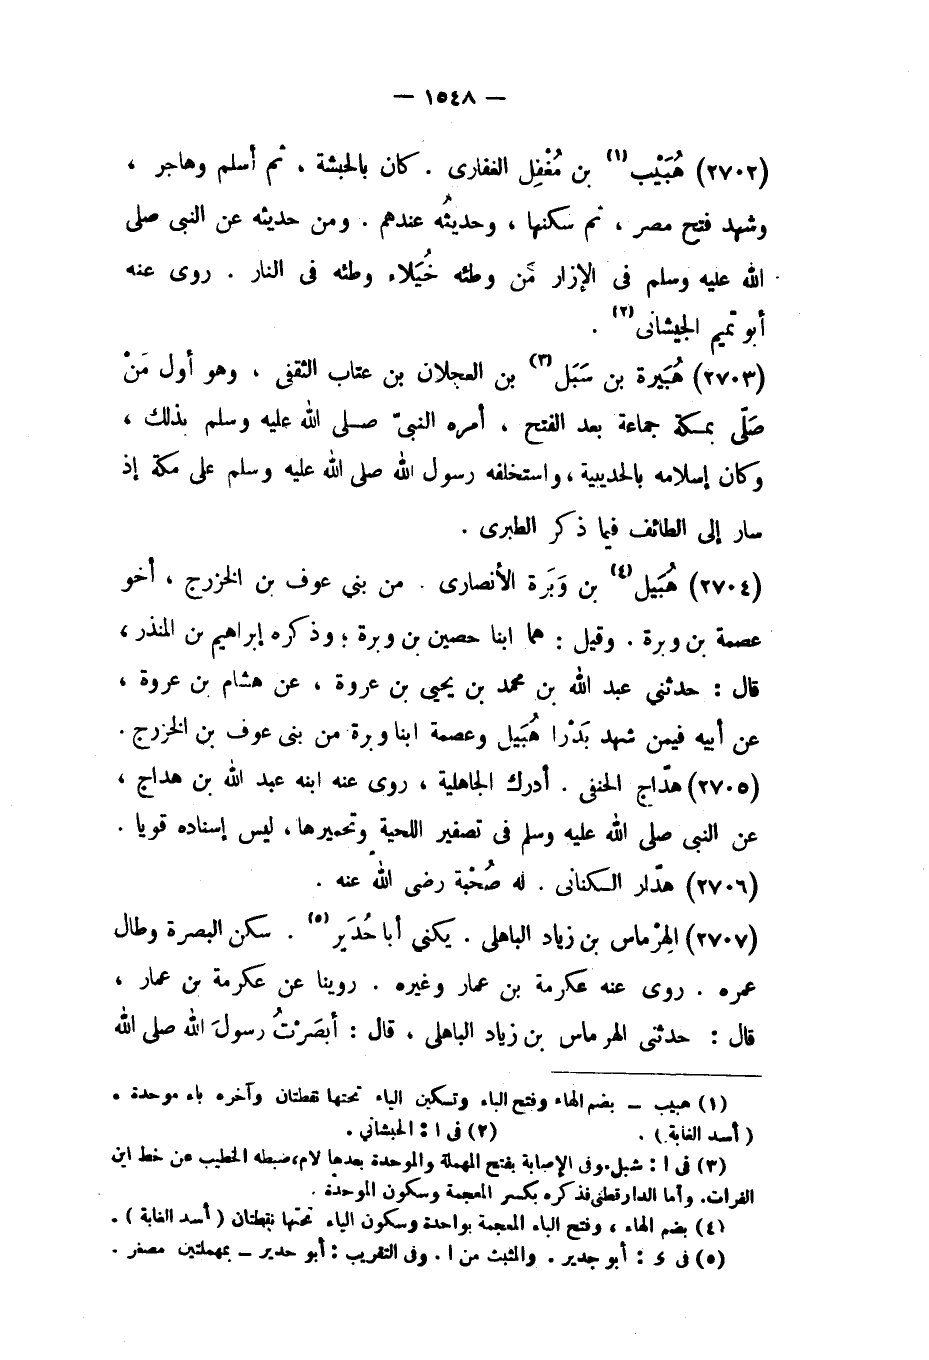 — ١٥٤٨ —
(٢٧٠٢) هُبَيْب(١) بن مُغْفِل الغفارى . كان بالحبشة ، ثم أسلم وهاجر ،
وشهد فتح مصر ، ثم سكنها ، وحديثُه عندهم . ومن حديثه عن النبى صلى
الله عليه وسلم فى الإزار مَن وطئه خُيَلاء وطئه فى النار . روى عنه
أبو تميم الجيشانى(٢) .
(٢٧٠٣) هُبَيرة بن سَبَل(٣) بن العجلان بن عتاب الثقفى ، وهو أول مَنْ
صَلّى بمكة جماعة بعد الفتح ، أمره النبىّ صلى الله عليه وسلم بذلك ،
وكان إسلامه بالحديبية ، واستخلفه رسول الله صلى الله عليه وسلم على مكة إذ
سار إلى الطائف فيما ذكر الطبرى .
(٢٧٠٤) هُبَيل(٤) بن وَبَرَة الأنصارى . من بني عوف بن الخزرج ، أخو
عصمة بن وبرة . وقيل : هما ابنا حصين بن وبرة ؛ وذكره إبراهيم بن المنذر ،
قال : حدثني عبد الله بن محمد بن يحيى بن عروة ، عن هشام بن عروة ،
عن أبيه فيمن شهد بَدْرا هُبَيل وعصمة ابنا وبرة من بنى عوف بن الخزرج .
(٢٧٠٥) هدّاج الحنفى . أدرك الجاهلية ، روى عنه ابنه عبد الله بن هداج ،
عن النبى صلى الله عليه وسلم فى تصفير اللحية وتحميرها ، ليس إسناده قويا .
(٢٧٠٦) هدّار الكنانى . له صُحْبة رضى الله عنه .
(٢٧٠٧) الهِرْماس بن زياد الباهلى . يكني أبا حُدَير(٥) . سكن البصرة وطال
عمره . روى عنه عكرمة بن عمار وغيره . روينا عن عكرمة بن عمار ،
قال : حدثنى الهرماس بن زياد الباهلى ، قال : أبصَرْتُ رسولَ الله صلى الله
(١) هبيب – بضم الهاء وفتح الباء وتسكين الياء تحتها نقطتان وآخره باء موحدة .
( أسد الغابة ) . (٢) فى ا : الحبشاني .
(٣) فى ا : شبل . وفى الإصابة بفتح المهملة والموحدة بعدها لام ، ضبطه الخطيب عن خط ابن
الفرات . وأما الدارقطنى فذكره بكسر المعجمة وسكون الموحدة .
(٤) بضم الهاء ، وفتح الباء المعجمة بواحدة وسكون الياء تحتها نقطتان ( أسد الغابة ) .
(٥) فى ء : أبو جدير . والمثبت من ا . وفى التقريب : أبو حدير – بمهملتين مصغر .